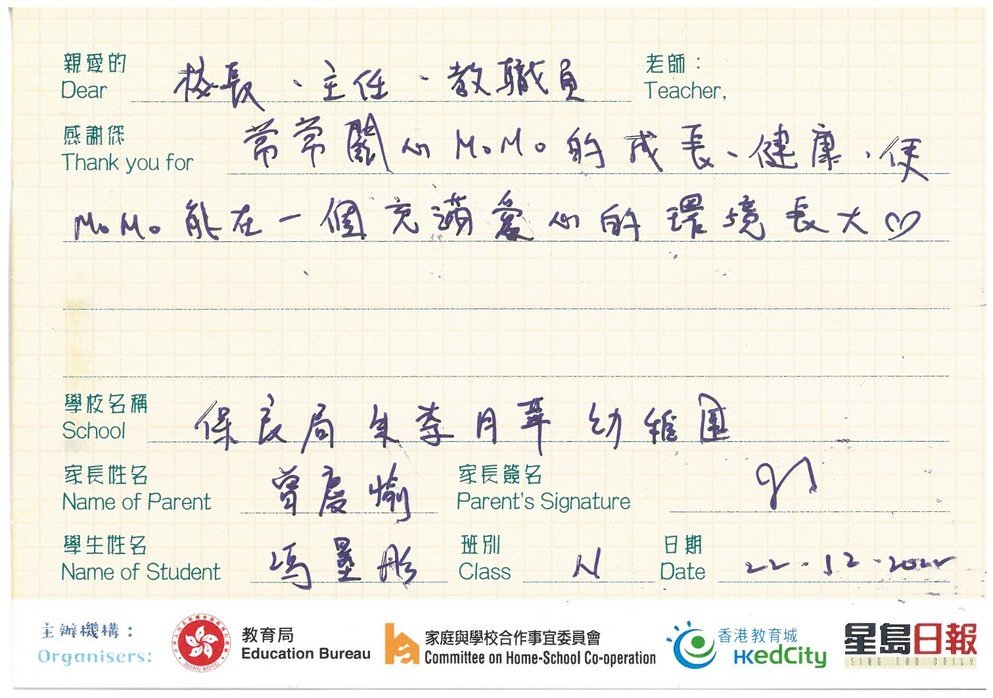 親愛的 校長、主任、教職員 老師：
Dear Teacher,
感謝您 常常關心MoMo的成長、健康、使
Thank you for
MoMo能在一個充滿愛心的環境長大♡
學校名稱 保良局朱李月華幼稚園
School
家長姓名 曾慶愉 家長簽名
Name of Parent Parent's Signature
學生姓名 馮 彤 班別 N 日期 22.12.2022
Name of Student Class Date
主辦機構： 教育局 家庭與學校合作事宜委員會 香港教育城 星島日報
Organisers: Education Bureau Committee on Home-School Co-operation HKedCity SING TAO DAILY